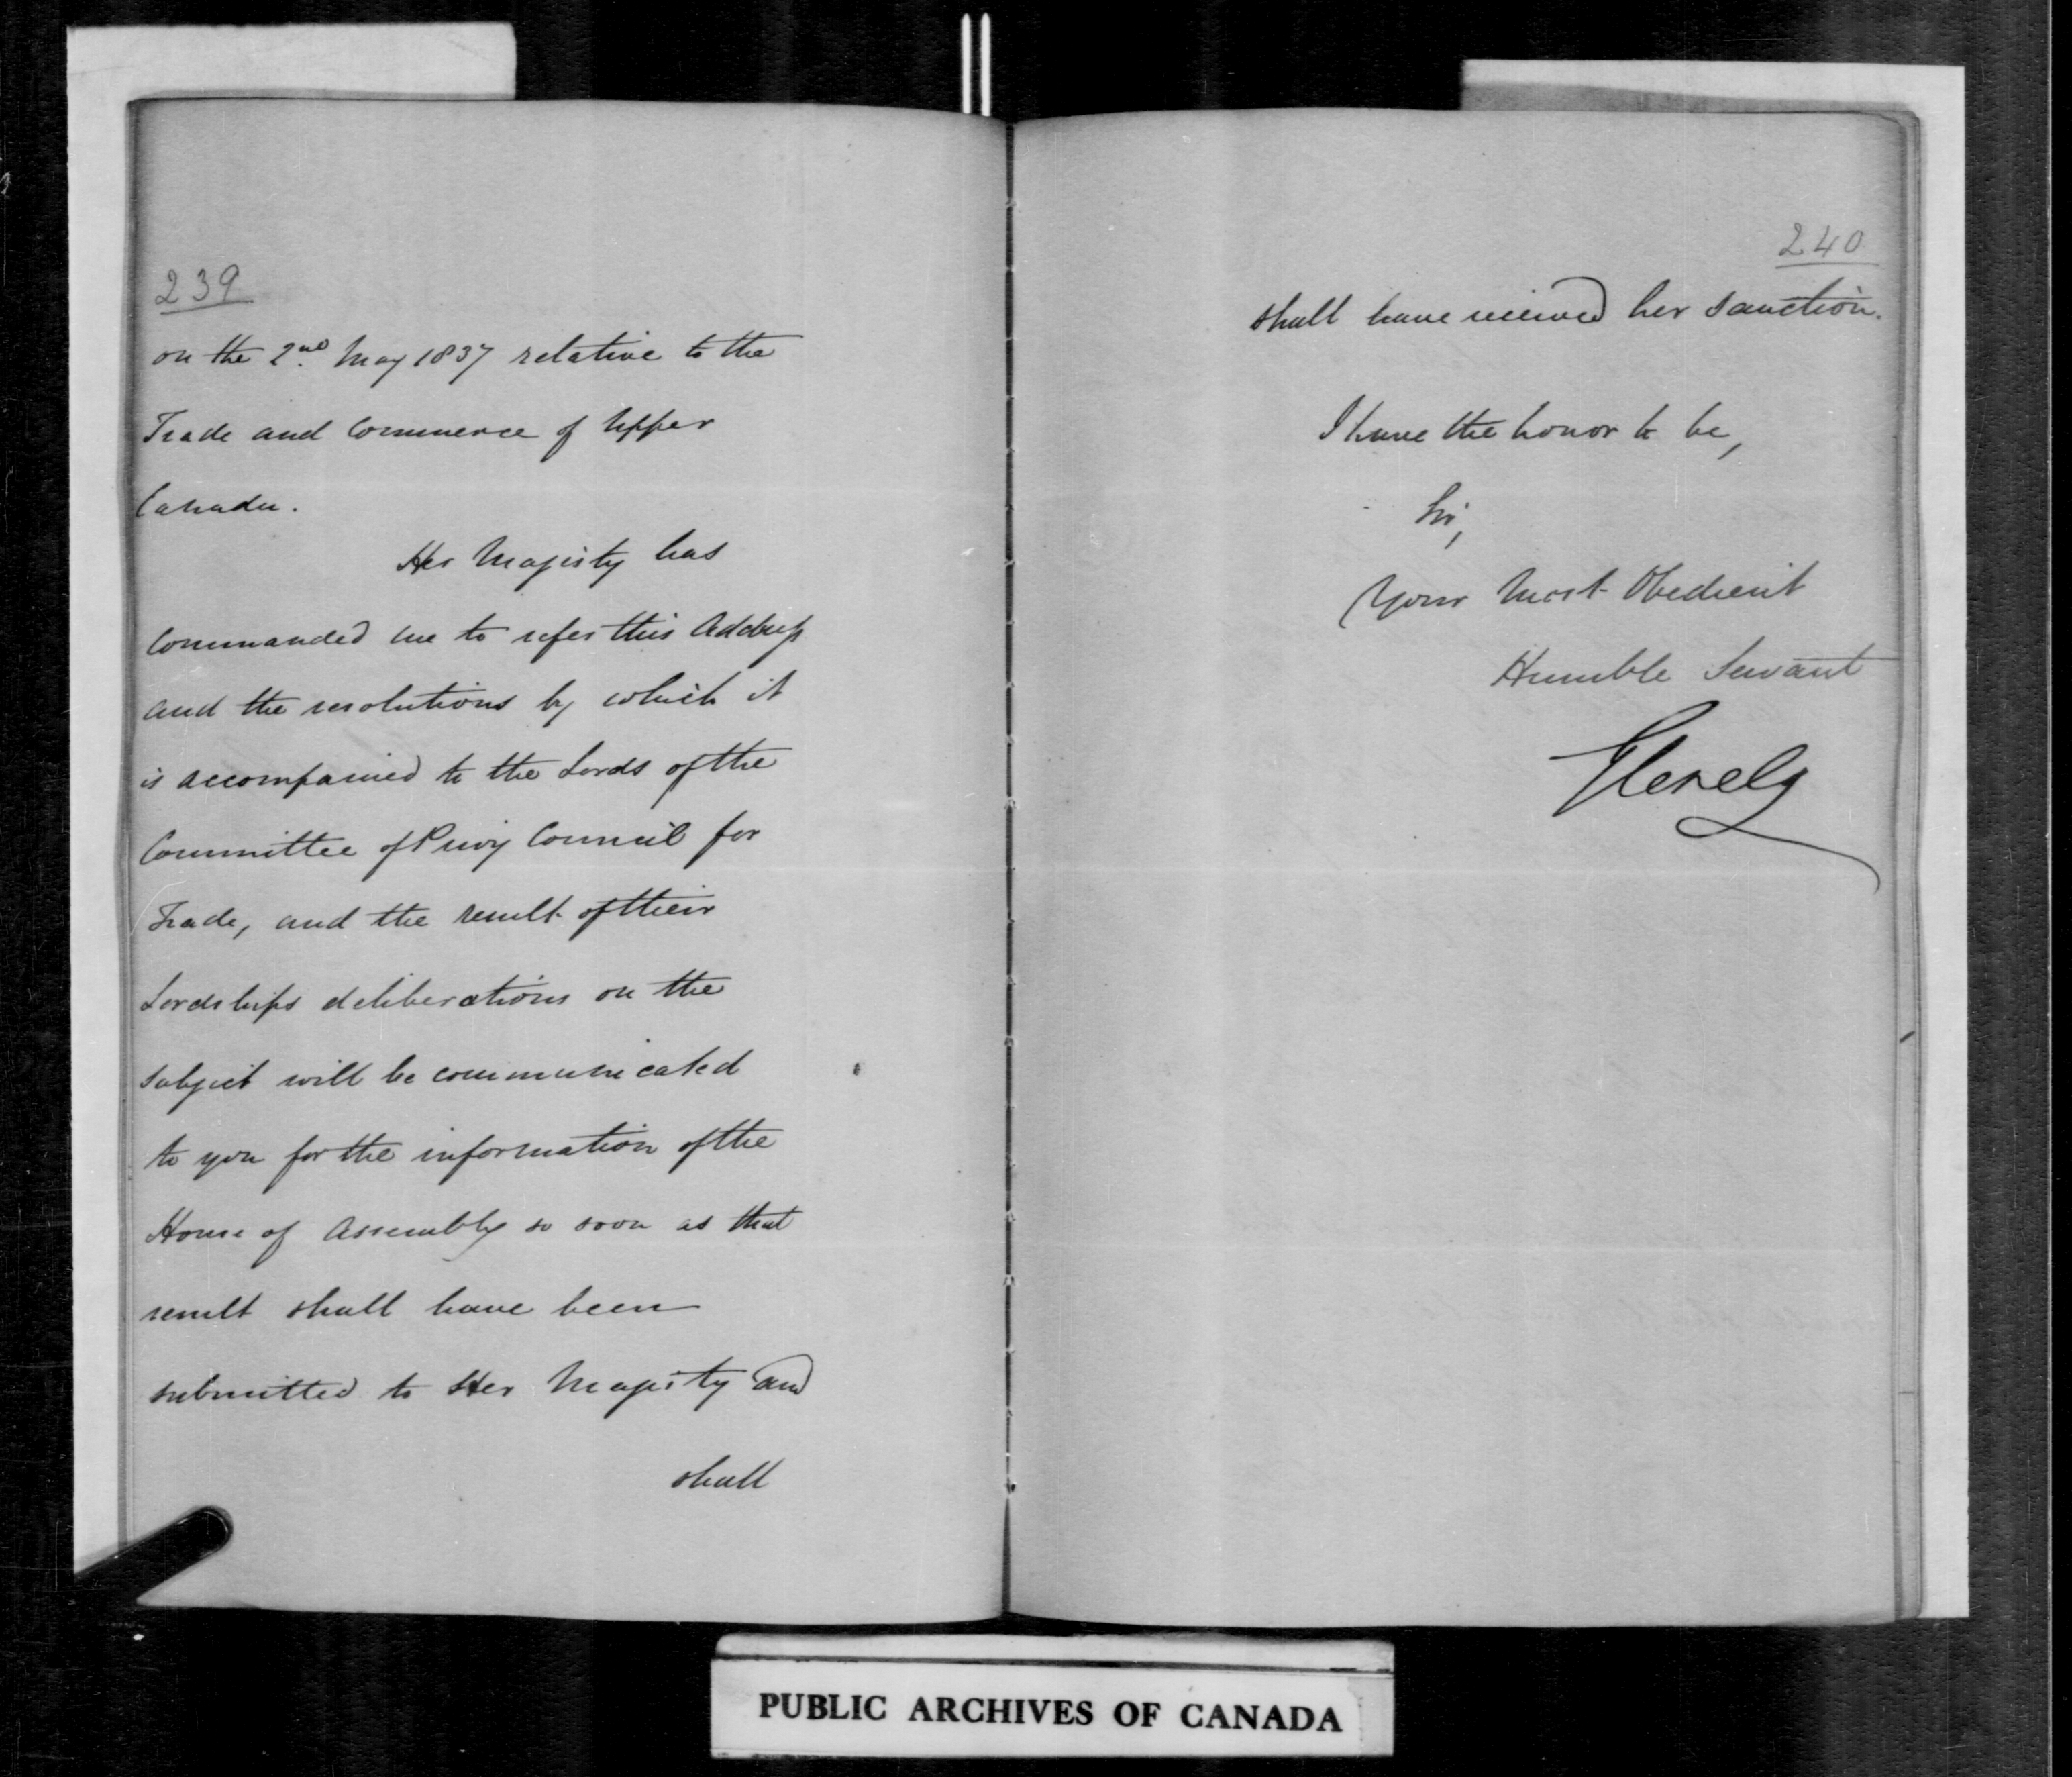 239
on the 2nd. May 1837 relative to the
Trade and Commerce of Upper
Canada.
Her Majesty has
Commanded me to refer this Address
and the resolutions by which it
is accompanied to the Lords of the
Committee of Privy Council for
Trade, and the result of their
Lordships deliberations on the
subject will be communicated
to you for the information of the
House of Assembly so soon as that
result shall have been
submitted to Her Majesty and
shall
240
shall have received her sanction.
I have the honor to be,
Sir,
Your Most Obedient
Humble Servant
Glenelg
PUBLIC ARCHIVES OF CANADA